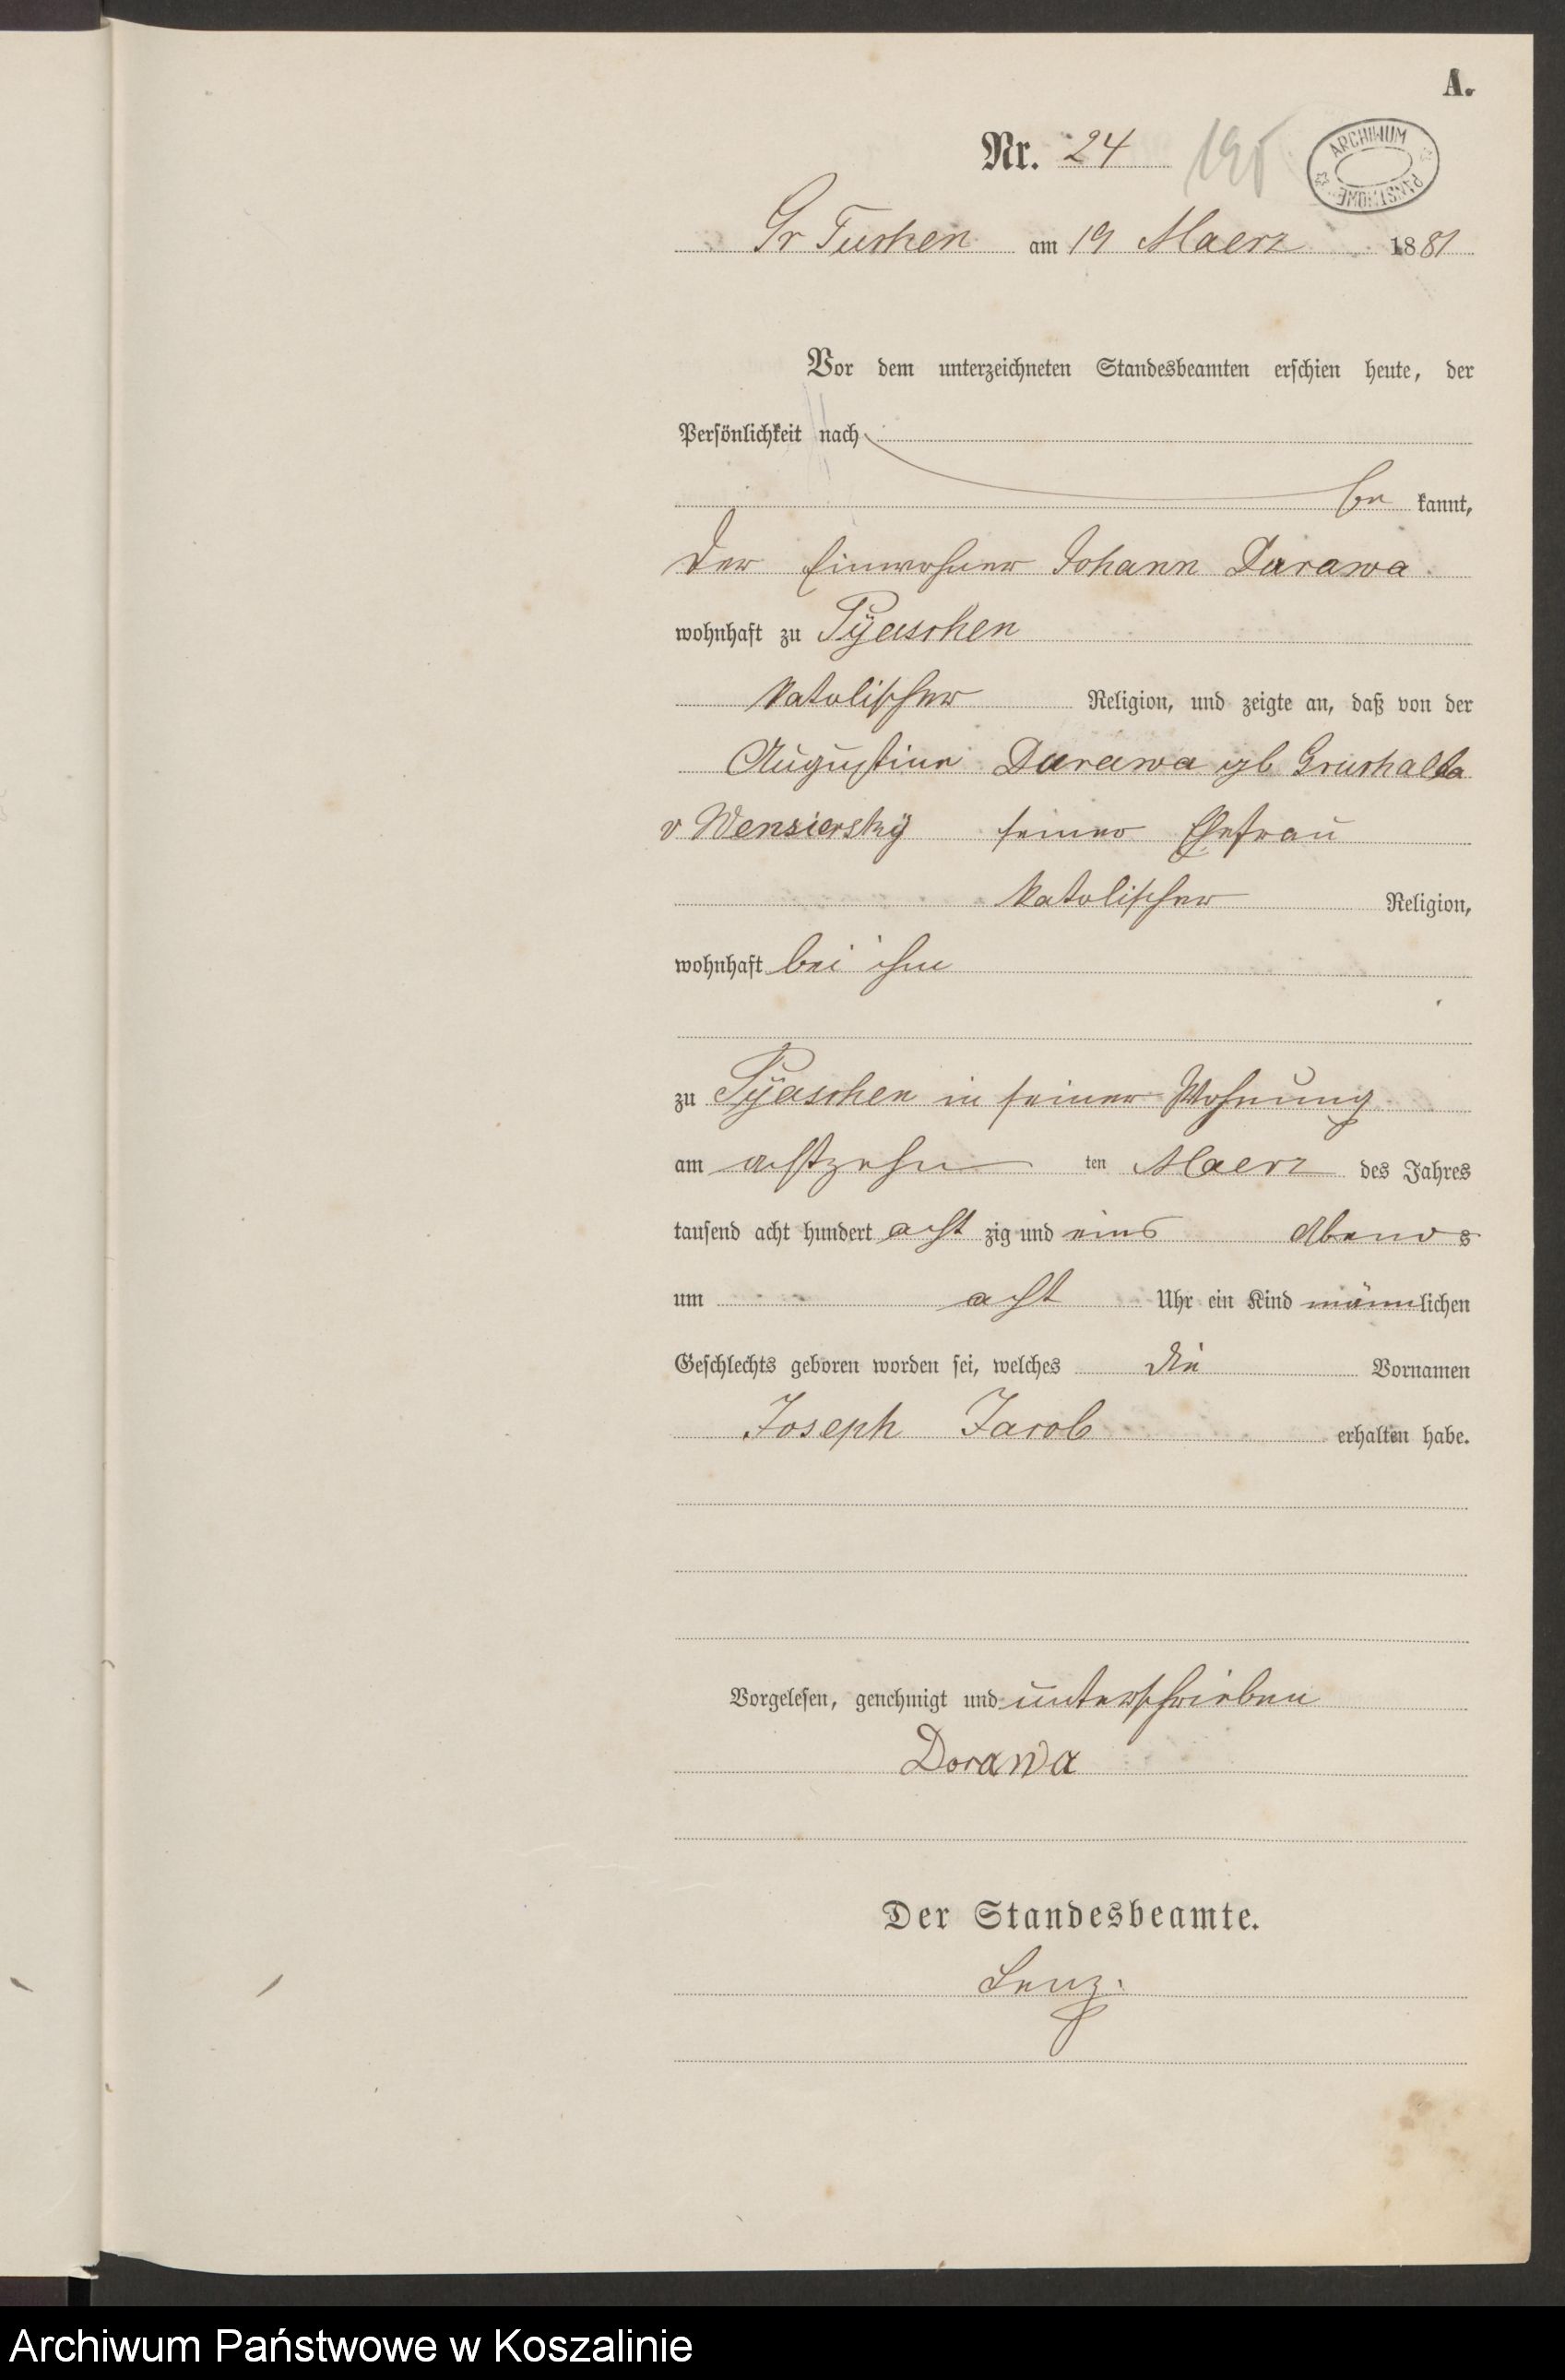 A.
Nr. 24 195
ARCHIWUM PAŃSTWOWE
Gr Tuchen am 19 Maerz 1881
Vor dem unterzeichneten Standesbeamten erschien heute, der
Persönlichkeit nach
be kannt,
der Einwohner Johann Darawa
wohnhaft zu Pÿaschen
katolischer Religion, und zeigte an, daß von der
Augustine Darawa gb Gruchalla
v Wensierskÿ seiner Ehefrau
katolischer Religion,
wohnhaft bei ihm
zu Pÿaschen in seiner Wohnung
am achtzehn ten Maerz des Jahres
tausend acht hundert acht zig und eins Abends
um acht Uhr ein Kind männlichen
Geschlechts geboren worden sei, welches die Vornamen
Joseph Jacob erhalten habe.
Vorgelesen, genehmigt und unterschrieben
Dorawa
Der Standesbeamte.
Lenz.
Archiwum Państwowe w Koszalinie